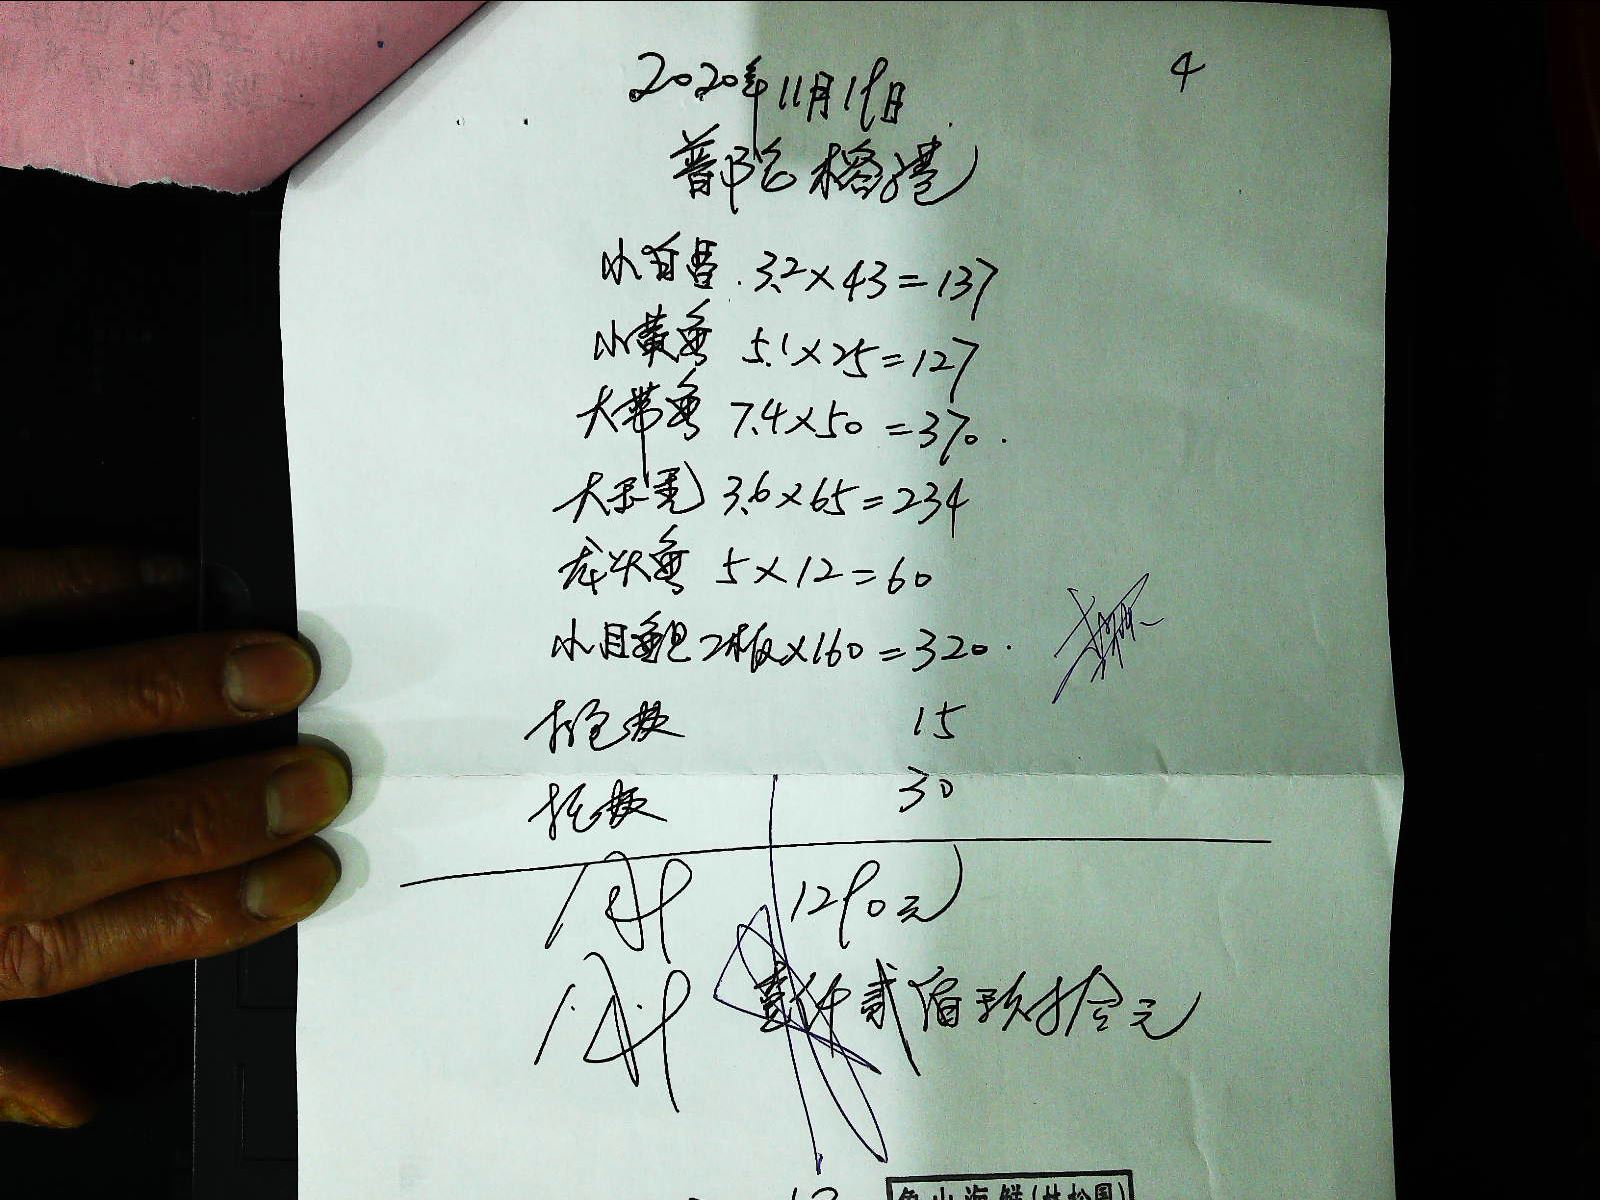 4
2020年11月19日
普陀 榕港
小白昌 3.2×43=137
小黄鱼 5.1×25=127
大带鱼 7.4×50=370.
大 3.6×65=234
龙头鱼 5×12=60
小目鱼 2板×160=320.
15
30
合计 1290元
合计 壹仟贰佰玖拾元
象山海鲜(林松国)